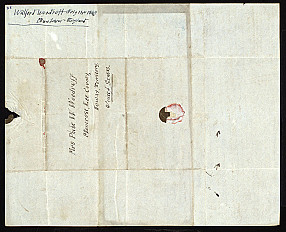 Wilford Woodruff
Manchester England
Mrs Phebe W Woodruff
Montrose Lee County
Iowa Territory
United States